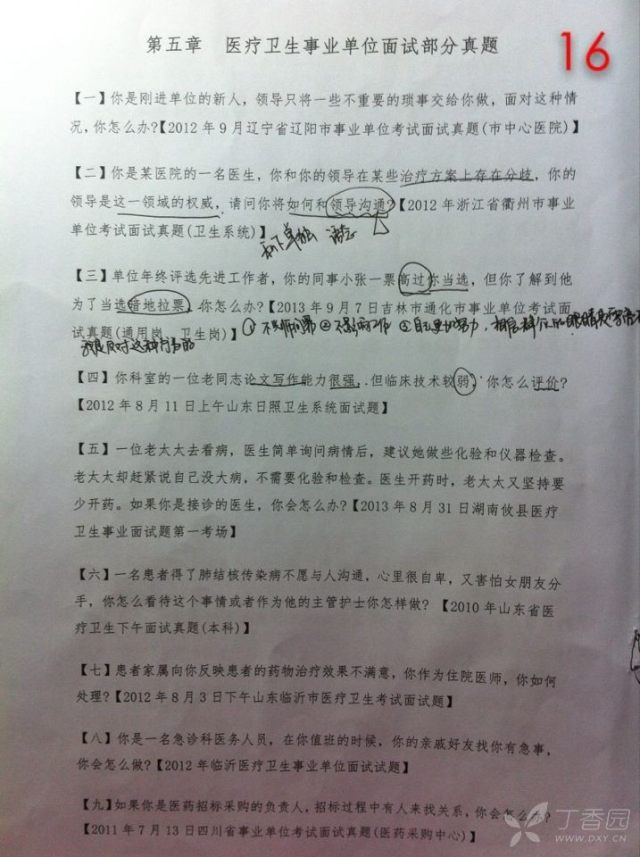 第五章 医疗卫生事业单位面试部分真题
16
【一】你是刚进单位的新人，领导只将一些不重要的琐事交给你做，面对这种情
况，你怎么办?【2012年9月辽宁省辽阳市事业单位考试面试真题(市中心医院)】
【二】你是某医院的一名医生，你和你的领导在某些治疗方案上存在分歧，你的
领导是这一领域的权威，请问你将如何和领导沟通?【2012年浙江省衢州市事业
单位考试面试真题(卫生系统)】
私下单独
【三】单位年终评选先进工作者，你的同事小张一票高过你当选，但你了解到他
为了当选暗地拉票，你怎么办?【2013年9月7日吉林市通化市事业单位考试面
试真题(通用岗、卫生岗)】
【四】你科室的一位老同志论文写作能力很强，但临床技术较弱，你怎么评价?
【2012年8月11日上午山东日照卫生系统面试题】
【五】一位老太太去看病，医生简单询问病情后，建议她做些化验和仪器检查。
老太太却赶紧说自己没大病，不需要化验和检查。医生开药时，老太太又坚持要
少开药。如果你是接诊的医生，你会怎么办?【2013年8月31日湖南攸县医疗
卫生事业面试题第一考场】
【六】一名患者得了肺结核传染病不愿与人沟通，心里很自卑，又害怕女朋友分
手，你怎么看待这个事情或者作为他的主管护士你怎样做?【2010年山东省医
疗卫生下午面试真题(本科)】
【七】患者家属向你反映患者的药物治疗效果不满意，你作为住院医师，你如何
处理?【2012年8月3日下午山东临沂市医疗卫生考试面试题】
【八】你是一名急诊科医务人员，在你值班的时候，你的亲戚好友找你有急事，
你会怎么做?【2012年临沂医疗卫生事业单位面试试题】
【九】如果你是医药招标采购的负责人，招标过程中有人来找关系，你会怎么办?
【2011年7月13日四川省事业单位考试面试真题(医药采购中心)】
丁香园
WWW.DXY.CN